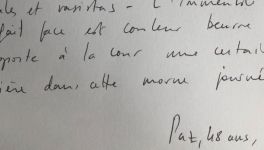 les et vasistas – L'immeuble
fait face est couleur beurre
pporte à la cour une certai
ière dans cette morne journé
Paz, 48 ans,